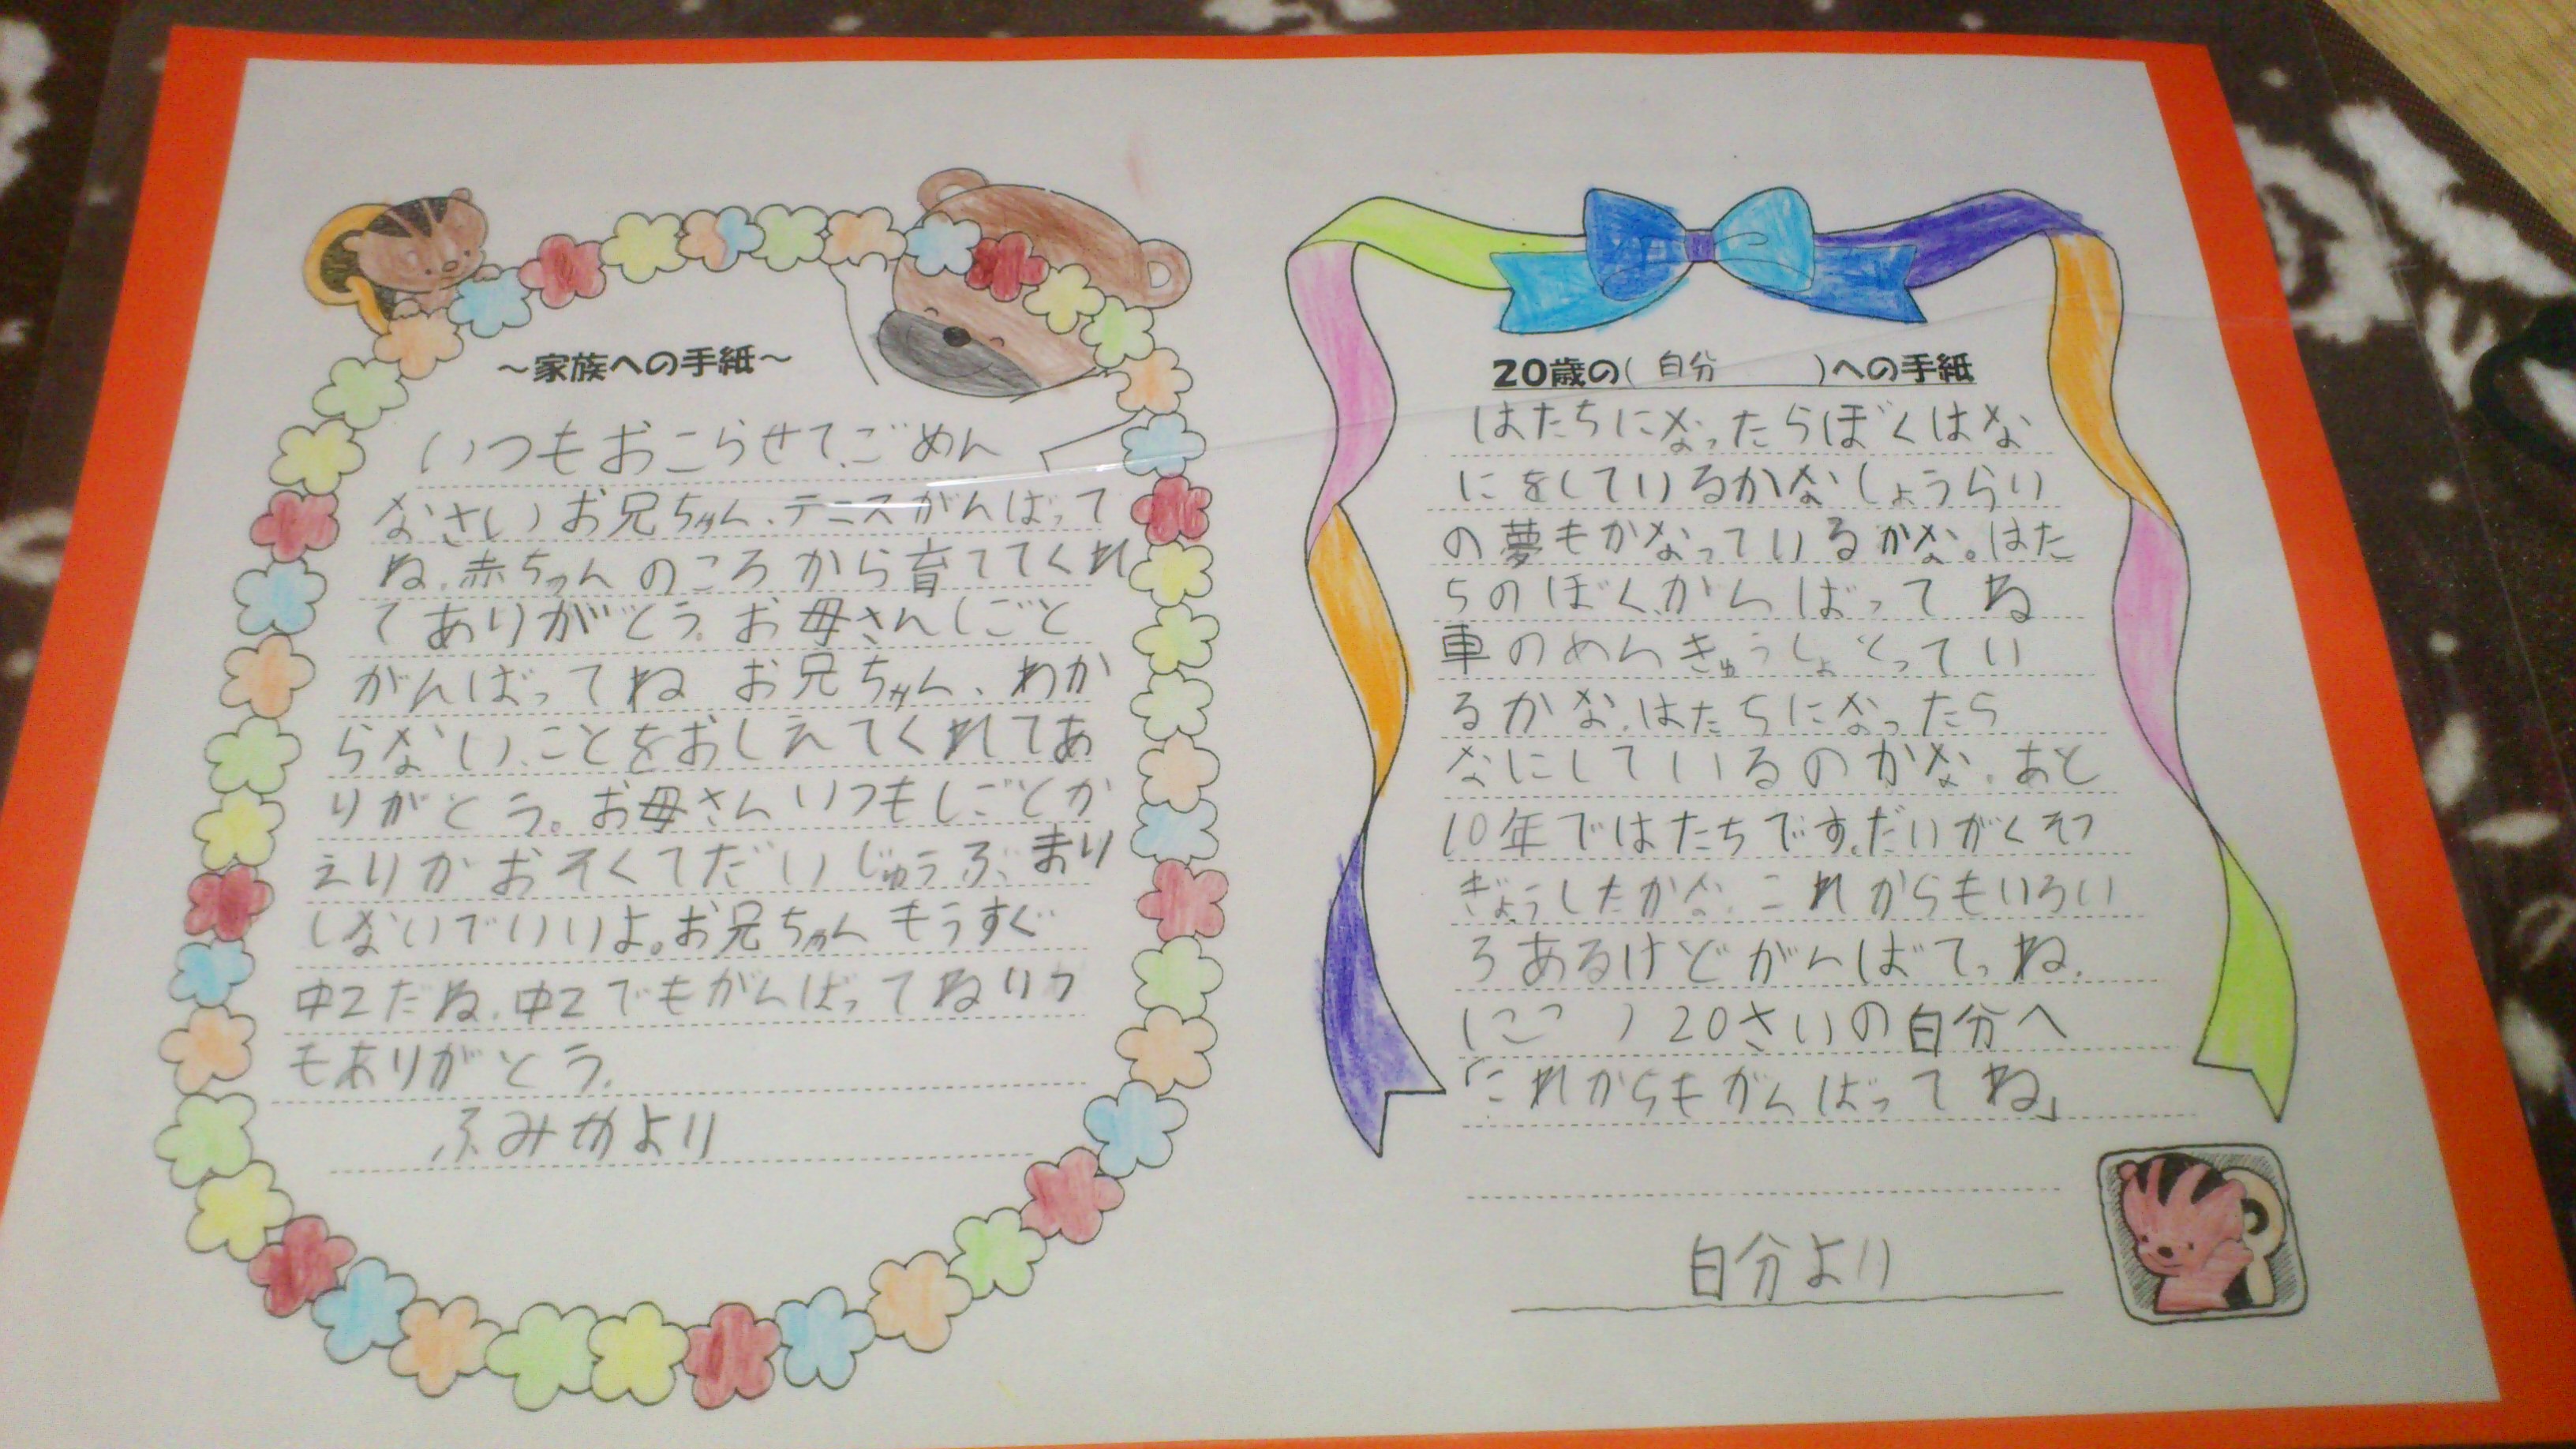 ～家族への手紙～
いつもおこらせて、ごめん
なさいお兄ちゃん、テニスがんばって
ね。赤ちゃんのころから育ててくれ
てありがとう。お母さんしごと
がんばってね お兄ちゃん、わか
らない、ことをおしえてくれてあ
りがとう。お母さんいつもしごとか
えりがおそくてだいじゅうぶ、まり
しないでいいよ。お兄ちゃんもうすぐ
中2だね。中2でもがんばってねいつ
もありがとう。
ふみかより
20歳の(自分)への手紙
はたちになったらぼくはな
にをしているかなしょうらい
の夢もかなっているかな。はた
ちのぼく、がんばってね
車のめんきゅうしょとってい
るかな。はたちになったら
なにしているのかな。あと
10年ではたちです。だいがくそつ
ぎょうしたかな。これからもいろい
ろあるけどがんばてっね。
20さいの自分へ
「これからもがんばってね」
自分より